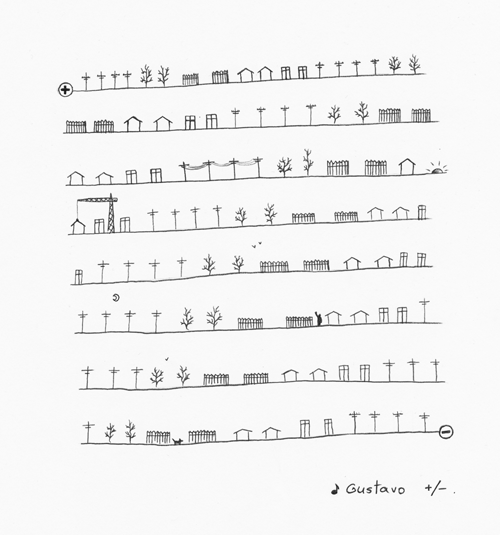 +
−
♪ Gustavo +/− .